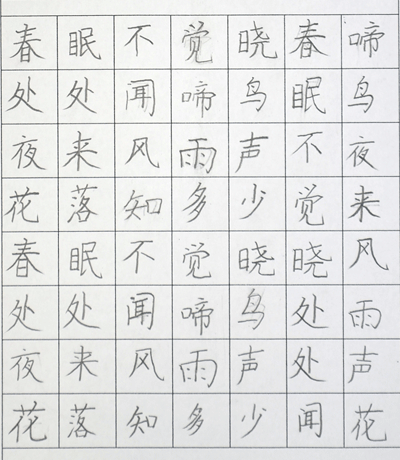 春眠不觉晓春啼
处处闻啼鸟眠鸟
夜来风雨声不夜
花落知多少觉来
春眠不觉晓晓风
处处闻啼鸟处雨
夜来风雨声处声
花落知多少闻花